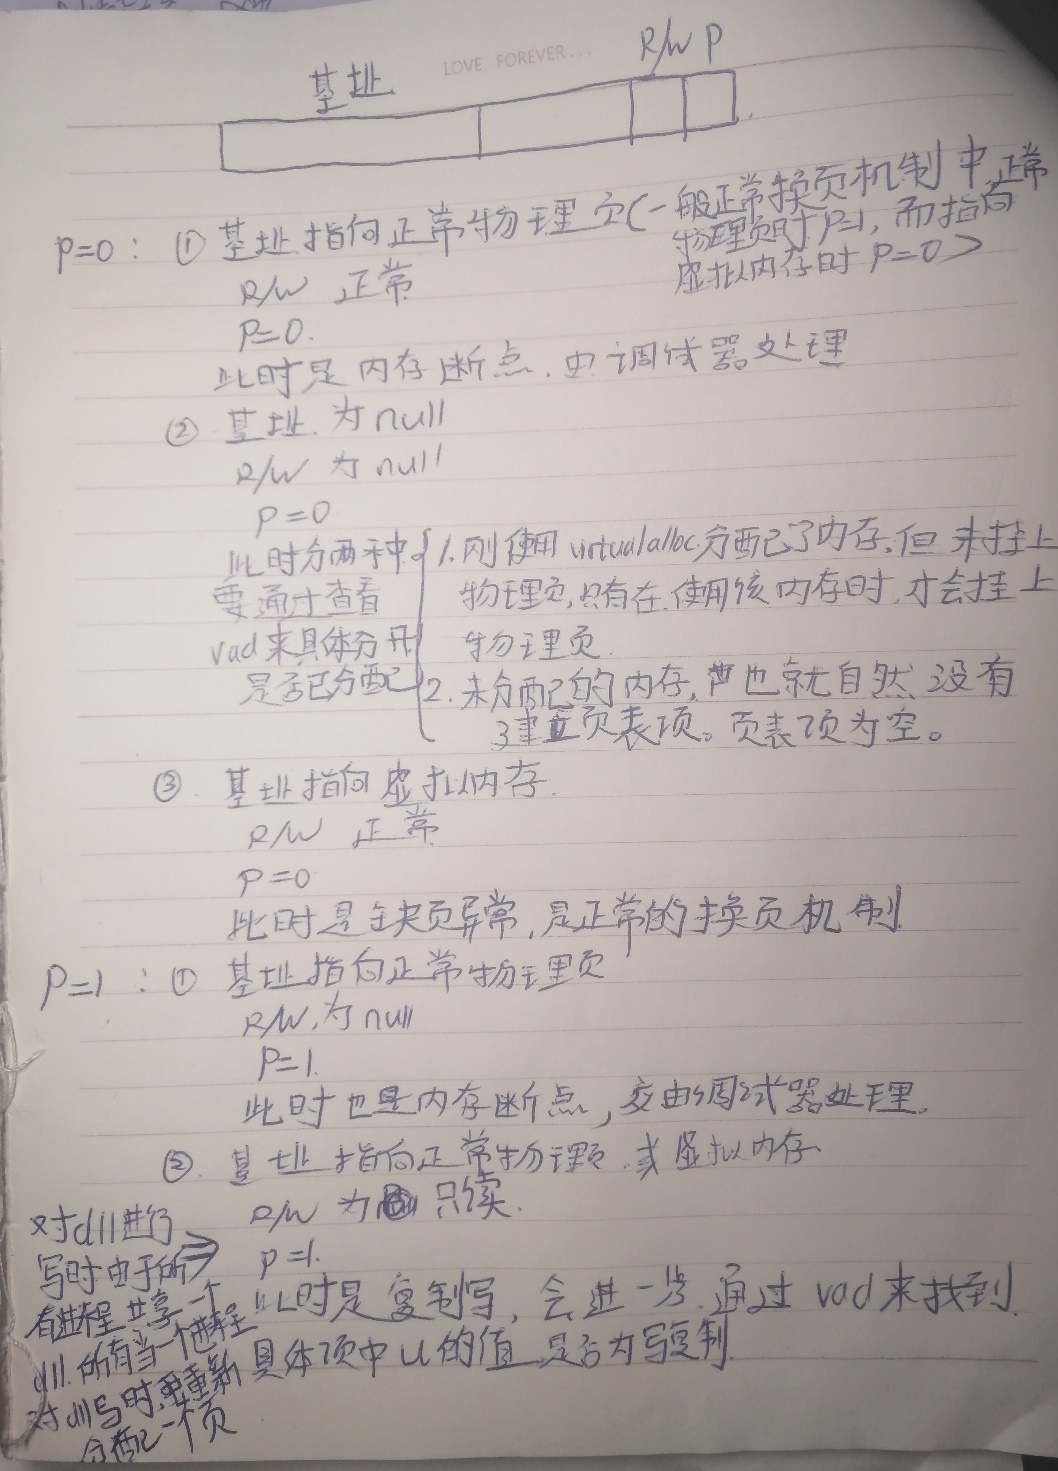 LOVE FOREVER...
基址 R/W P
P=0: ① 基址指向正常物理页(一般正常换页机制中,正常
物理页时P=1,而指向
虚拟内存时P=0>
R/W 正常
P=0.
此时是内存断点.由调试器处理
② 基址.为null
R/W 为 null
P=0
此时分两种.
要通过查看
vad来具体分开
是否已分配
1. 刚使用virtualalloc分配了内存,但未挂上
物理页,只有在使用该内存时,才会挂上
物理页.
2. 未分配的内存,也就自然没有
建立页表项。页表项为空。
③. 基址指向虚拟内存.
R/W 正常
P=0
此时是缺页异常,是正常的换页机制.
P=1: ① 基址指向正常物理页
R/W,为null
P=1.
此时也是内存断点,交由调试器处理.
②. 基址指向正常物理页.或虚拟内存
R/W 为 只读.
P=1.
此时是复制写,会进一步通过vad来找到.
具体项中u的值是否为写复制.
对dll进行
写时由于所
有进程共享一个
dll.所有当一个进程
对dll写时,要重新
分配一个页